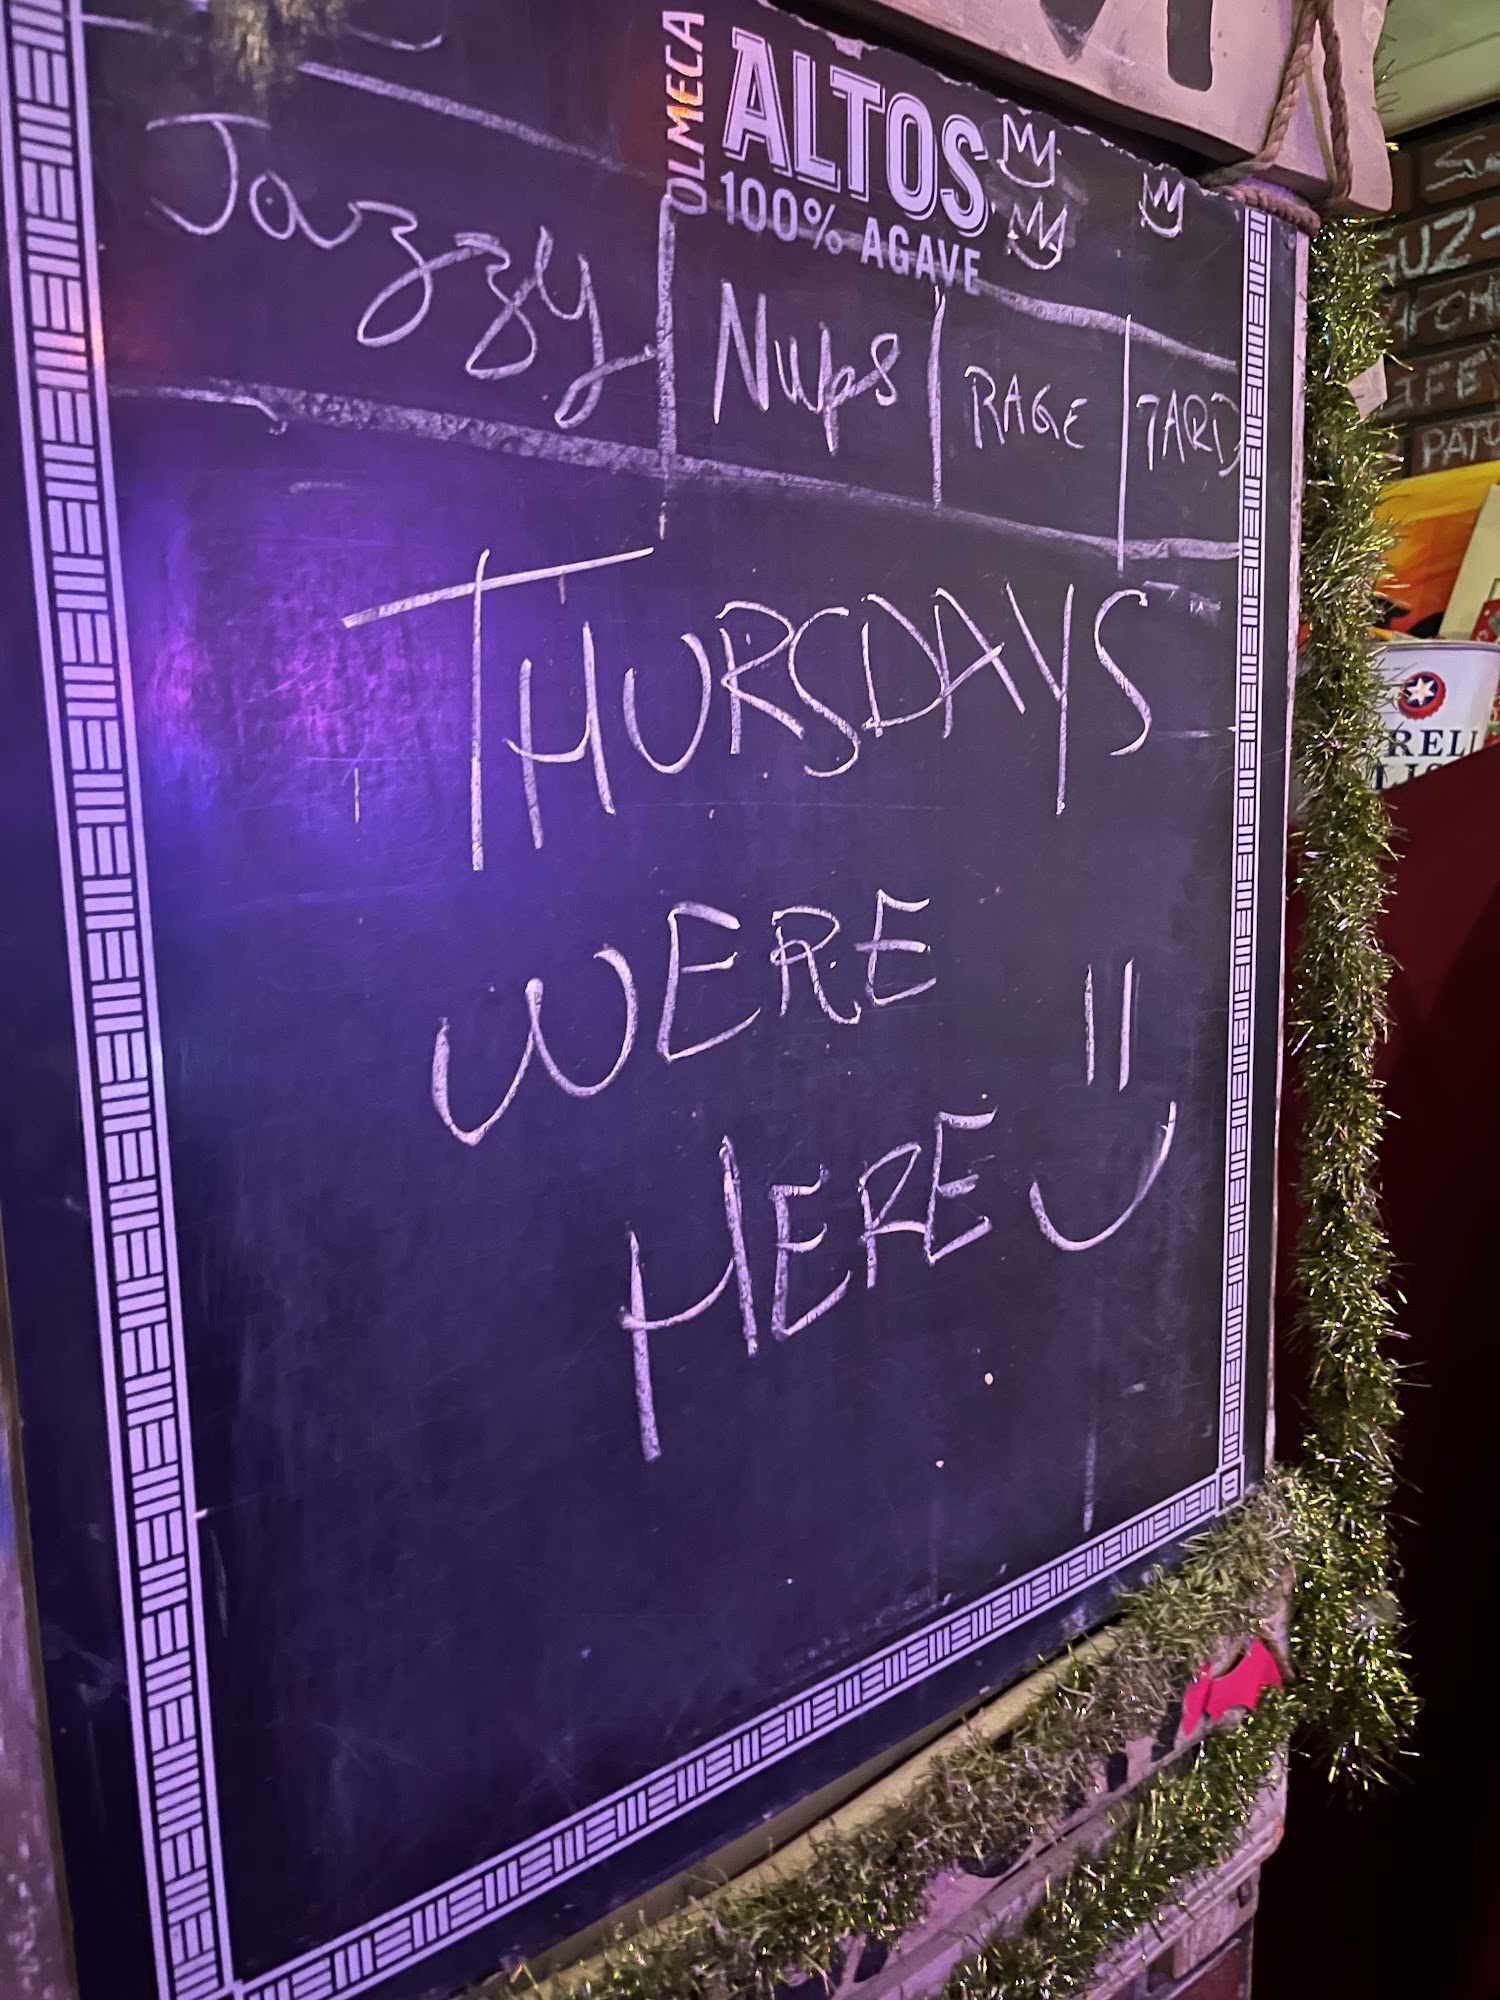 OLMECA
ALTOS
100% AGAVE
Jazzy Nups RAGE TARD
THURSDAYS
WERE
HERE